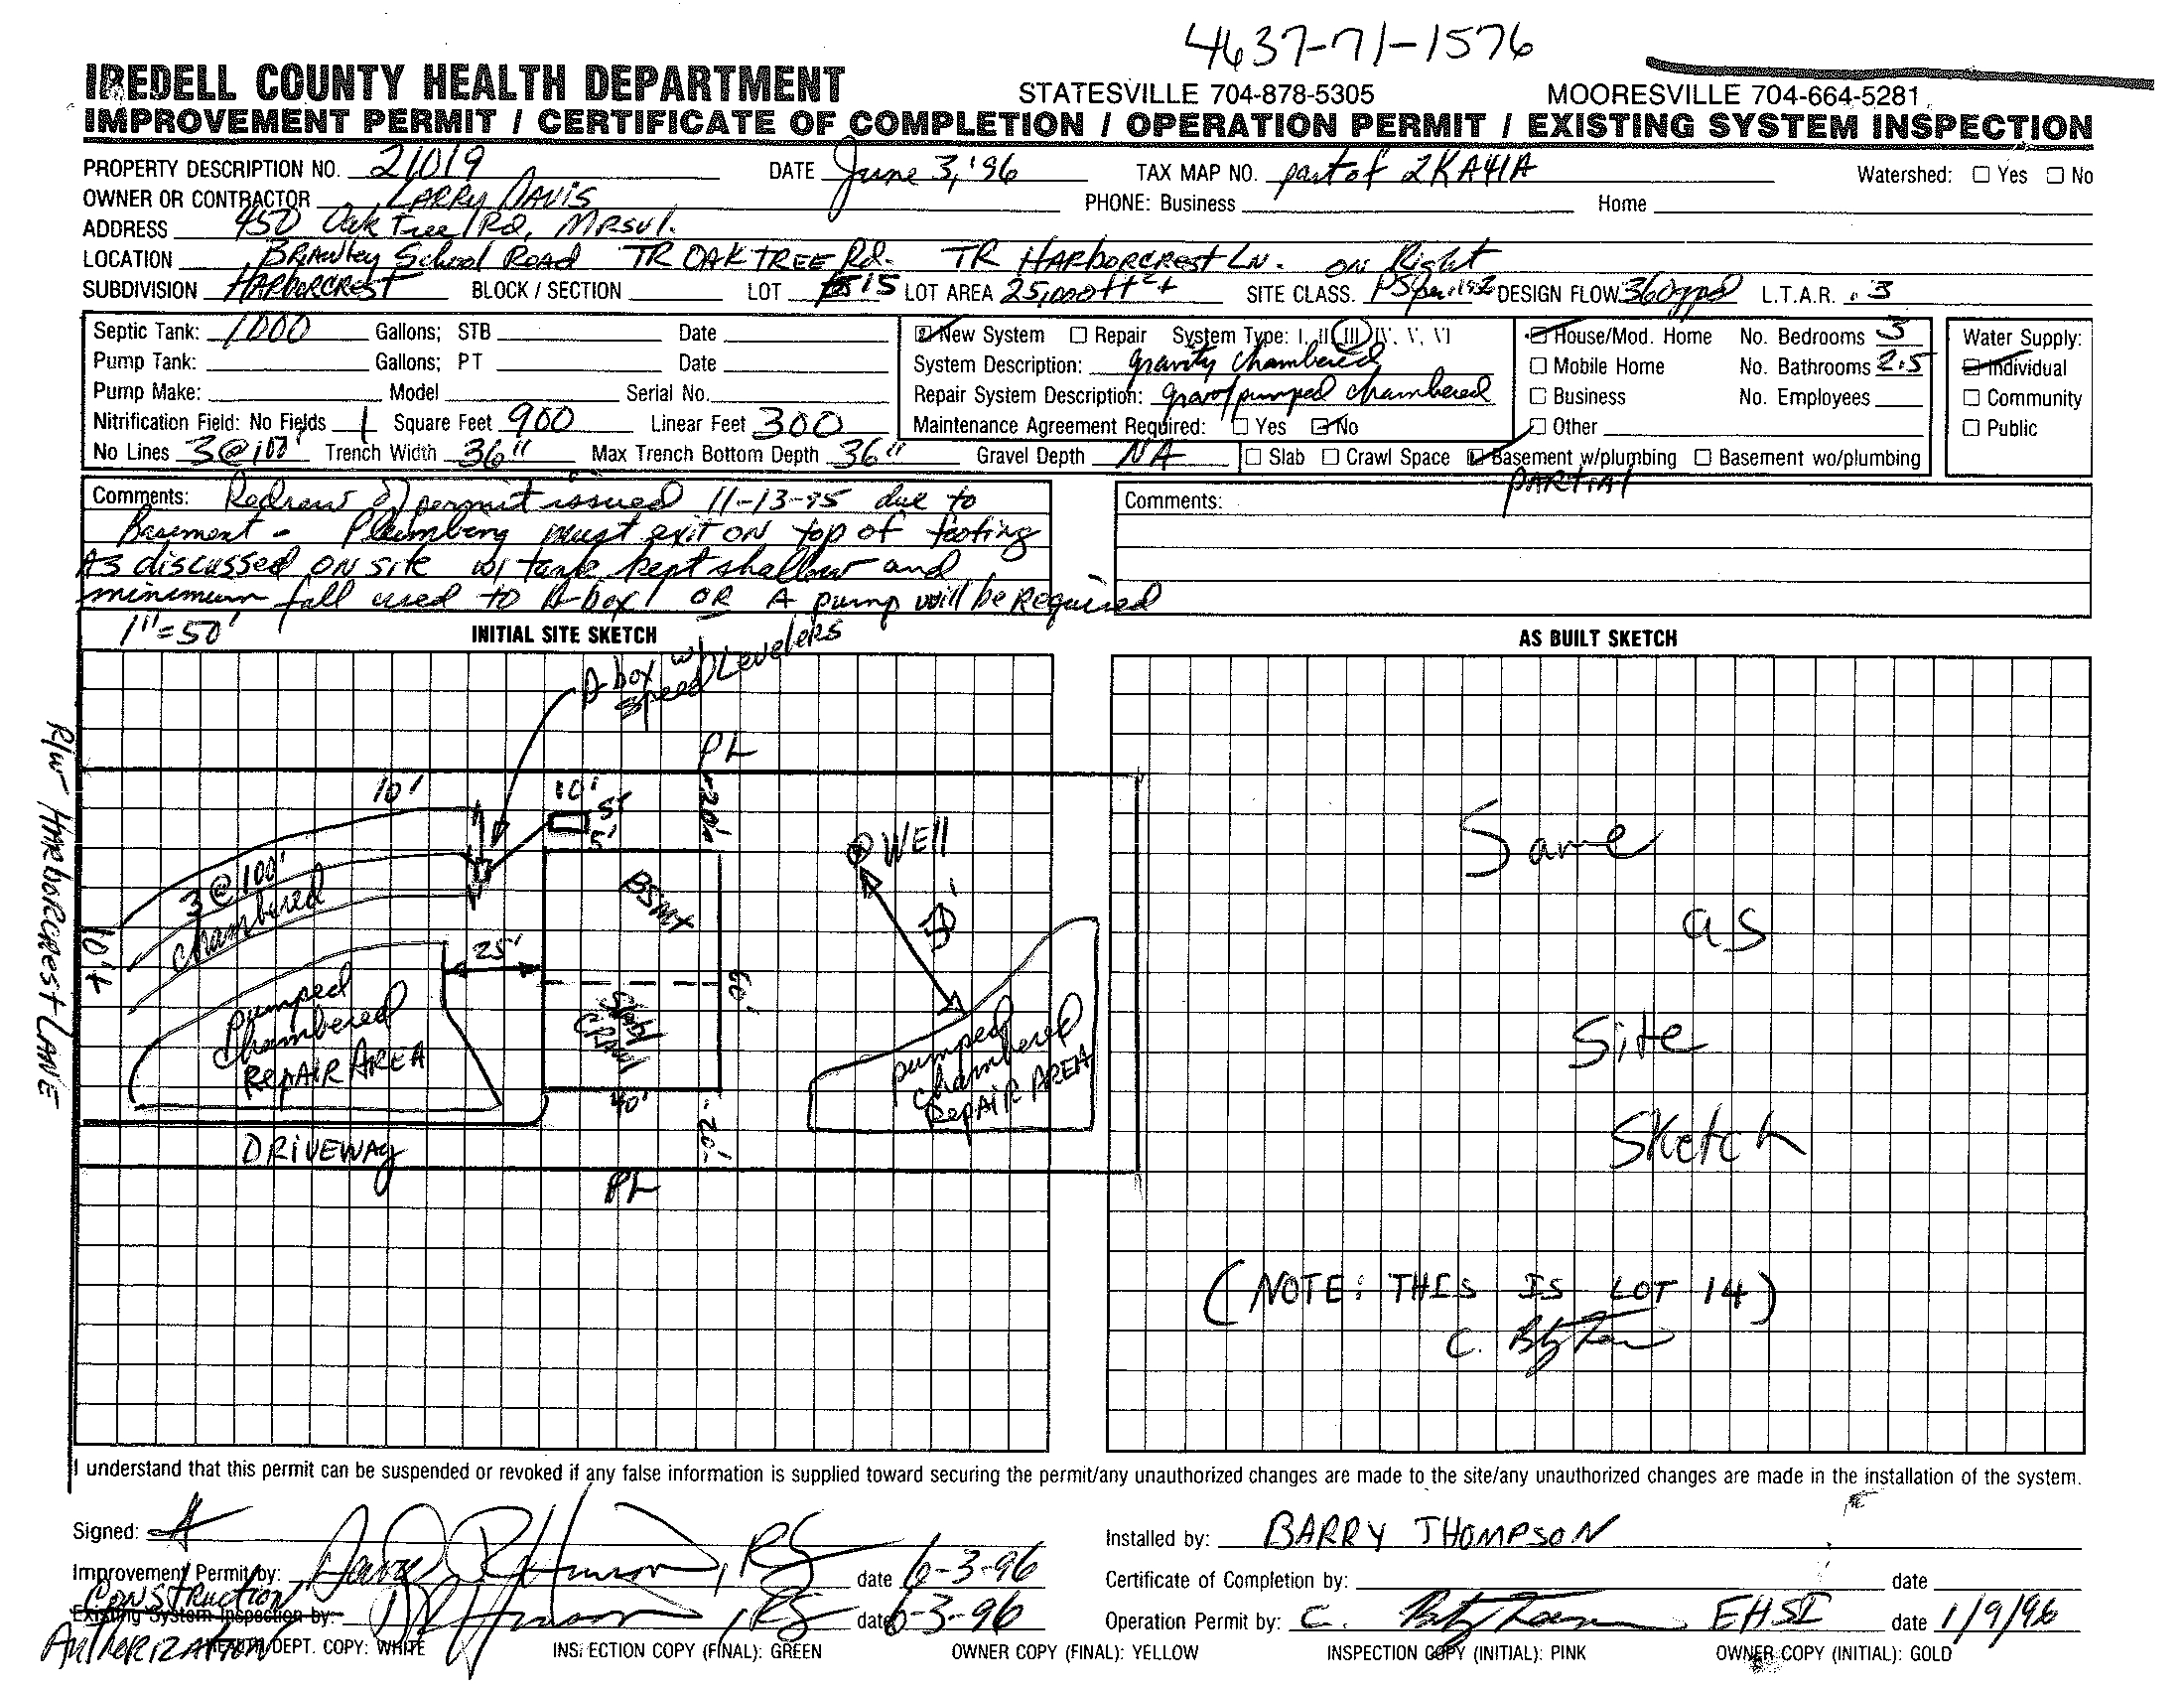 4637-71-1576
IREDELL COUNTY HEALTH DEPARTMENT STATESVILLE 704-878-5305 MOORESVILLE 704-664-5281
IMPROVEMENT PERMIT / CERTIFICATE OF COMPLETION / OPERATION PERMIT / EXISTING SYSTEM INSPECTION
PROPERTY DESCRIPTION NO. 21019 DATE June 3, '96 TAX MAP NO. part of 2KA41A Watershed: ☐ Yes ☐ No
OWNER OR CONTRACTOR LARRY DAVIS PHONE: Business Home
ADDRESS 450 Oak Tree Rd, MRSVl.
LOCATION BRAWley School ROAD TR OAK TREE Rd. TR HARborcrest LN. ON Right
SUBDIVISION HARborcrest BLOCK / SECTION LOT 15 LOT AREA 25,000 ft² + SITE CLASS. PS DESIGN FLOW 360gpd L.T.A.R. .3
Septic Tank: 1000 Gallons; STB Date
Pump Tank: Gallons; PT Date
Pump Make: Model Serial No.
Nitrification Field: No Fields 1 Square Feet 900 Linear Feet 300
No Lines 3@100' Trench Width 36" Max Trench Bottom Depth 36" Gravel Depth NA
☑ New System ☐ Repair System Type: I, II, III, IV, V, VI
System Description: gravity chambered
Repair System Description: grav/pumped chambered
Maintenance Agreement Required: ☐ Yes ☑ No
☑ House/Mod. Home No. Bedrooms 3
☐ Mobile Home No. Bathrooms 2.5
☐ Business No. Employees
☐ Other
☐ Slab ☐ Crawl Space ☑ Basement w/plumbing ☐ Basement wo/plumbing
PARtiAl
Water Supply:
☑ Individual
☐ Community
☐ Public
Comments: Redraw of permit issued 11-13-95 due to
Basement - Plumbing must exit ON top of footing
As discussed ON site w/ tank kept shallow and
minimum fall used to D-box! OR A pump will be Required
Comments:
1"=50' INITIAL SITE SKETCH
D-box w/
speed Levelers
PL
R/W HARborcrest LANE
10'
10'
5'
5'
20'
WEll
3@100'
chambered
BSMt
50'
10'+
25'
60'
pumped
chambered
REPAIR AREA
Slab/
CRAWl
pumped
chambered
REPAIR AREA
40'
20'
DRIVEWAY
PL
AS BUILT SKETCH
Same
as
Site
Sketch
(NOTE: THIS IS LOT 14)
I understand that this permit can be suspended or revoked if any false information is supplied toward securing the permit/any unauthorized changes are made to the site/any unauthorized changes are made in the installation of the system.
Signed:
Improvement Permit by: , RS date 6-3-96
CONStRuction
Existing System Inspection by: , RS date 6-3-96
AUtHORIZAtION
Installed by: BARRY THOMPSON
Certificate of Completion by: date
Operation Permit by: C. EHSI date 1/9/96
HEALTH DEPT. COPY: WHITE INSPECTION COPY (FINAL): GREEN OWNER COPY (FINAL): YELLOW INSPECTION COPY (INITIAL): PINK OWNER COPY (INITIAL): GOLD